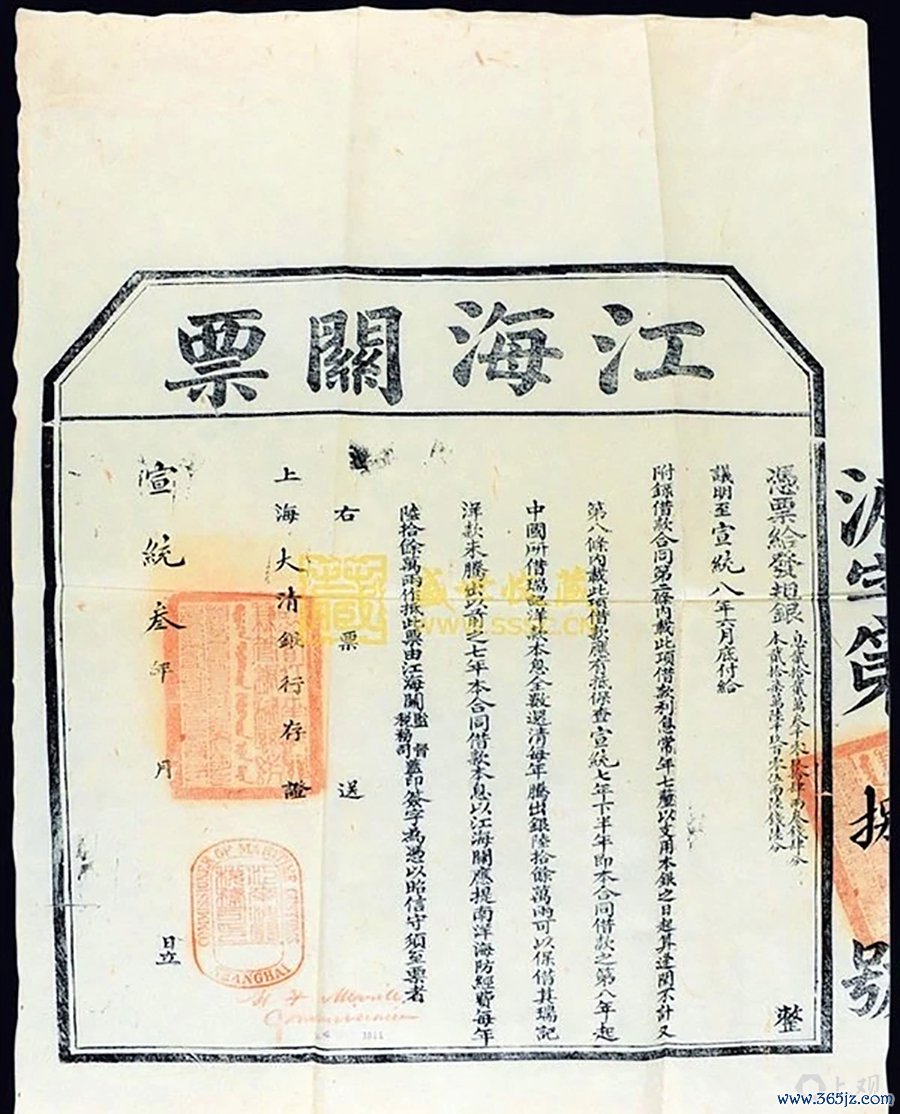 江海關票
第捌號
憑票給發規銀
整
議明至宣統八年六月底付給
附錄借款合同第二條內載此項借款利息常年七釐以支用本銀之日起算逢閏不計又
第八條內載此項借款應有抵保查宣統七年下半年即本合同借款之第八年起
中國所借瑞記洋款本息全數還清每年騰出銀陸拾餘萬兩可以保借其瑞記
洋款未騰出以前之七年本合同借款本息以江海關應提南洋海防經費每年
陸拾餘萬兩作抵此票由江海關監督稅務司蓋印簽字為憑以昭信守須至票者
右票送
上海大清銀行存證
宣統叁年 月 日立
COMMISSIONER OF MARITIME CUSTOMS
SHANGHAI
Commissioner
1911
盛世收藏
www.sssc.cn
上观
www.365jz.com